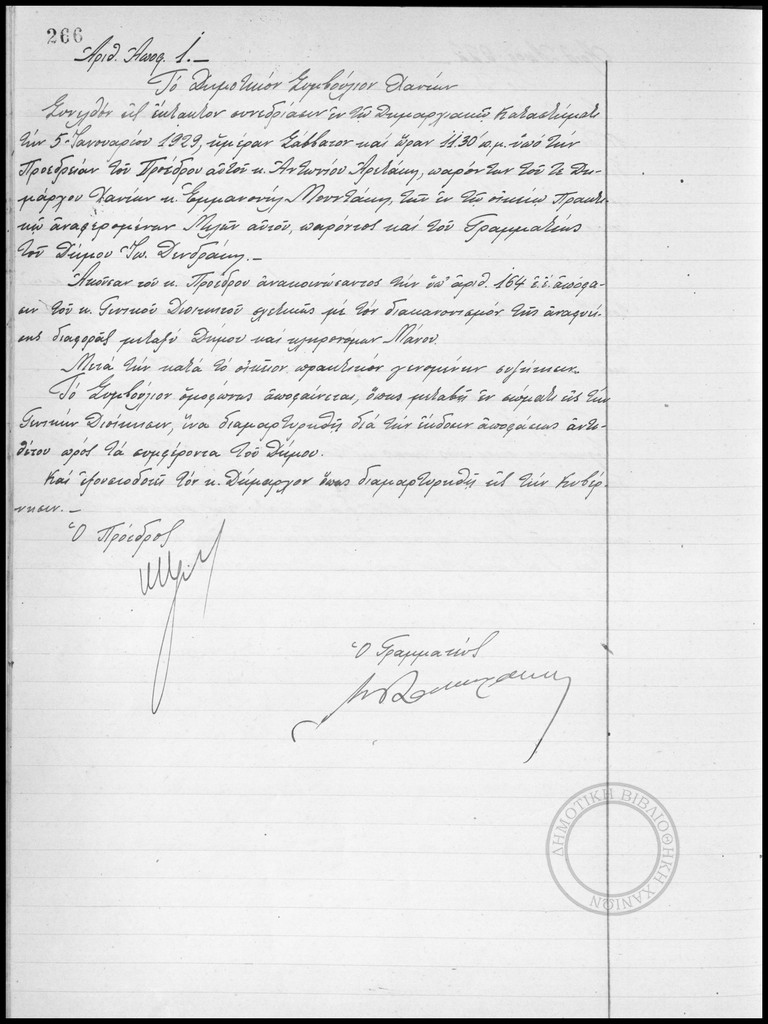 266
Ἀριθ. Ἀποφ. 1.–
Τό Δημοτικόν Συμβούλιον Χανίων
Συνελθόν εἰς ἔκτακτον συνεδρίασιν ἐν τῷ Δημαρχιακῷ Καταστήματι
τήν 5 Ἰανουαρίου 1929, ἡμέραν Σάββατον καί ὥραν 11.30' π.μ. ὑπό τήν
Προεδρείαν τοῦ Προέδρου αὐτοῦ κ. Ἀντωνίου, παρόντων τοῦ τε Δη-
μάρχου Χανίων κ. Ἐμμανουήλ Μουντάκη, τῶν ἐν τῷ οἰκείῳ Πρακτι-
κῷ ἀναφερομένων Μελῶν αὐτοῦ, παρόντος καί τοῦ Γραμματέως
τοῦ Δήμου Ἰω. Δενδράκη.–
Ἀκοῦσαν τοῦ κ. Προέδρου ἀνακοινώσαντος τήν ὑπ' ἀριθ. 164 ἐ.ἔ. ἀπόφα-
σιν τοῦ κ. Γενικοῦ Διοικητοῦ σχετικῶς μέ τόν διακανονισμόν τῆς ἀναφυεί-
σης διαφορᾶς μεταξύ Δήμου καί κληρονόμων Μάνου.
Μετά τήν κατά τό οἰκεῖον πρακτικόν γενομένην συζήτησιν.
Τό Συμβούλιον ὁμοφώνως ἀποφαίνεται, ὅπως μεταβῇ ἐν σώματι εἰς τήν
Γενικήν Διοίκησιν, ἵνα διαμαρτυρηθῇ διά τήν ἔκδοσιν ἀποφάσεως ἀντι-
θέτου πρός τά συμφέροντα τοῦ Δήμου.
Καί ἐξουσιοδοτεῖ τόν κ. Δήμαρχον ὅπως διαμαρτυρηθῇ εἰς τήν Κυβέρ-
νησιν.–
Ὁ Πρόεδρος
Ὁ Γραμματεύς
ΔΗΜΟΤΙΚΗ ΒΙΒΛΙΟΘΗΚΗ ΧΑΝΙΩΝ